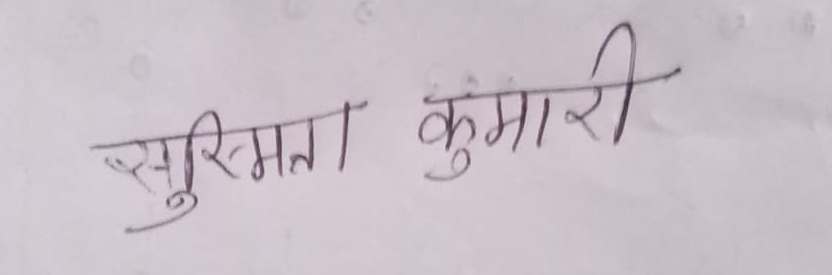 सुस्मिता कुमारी